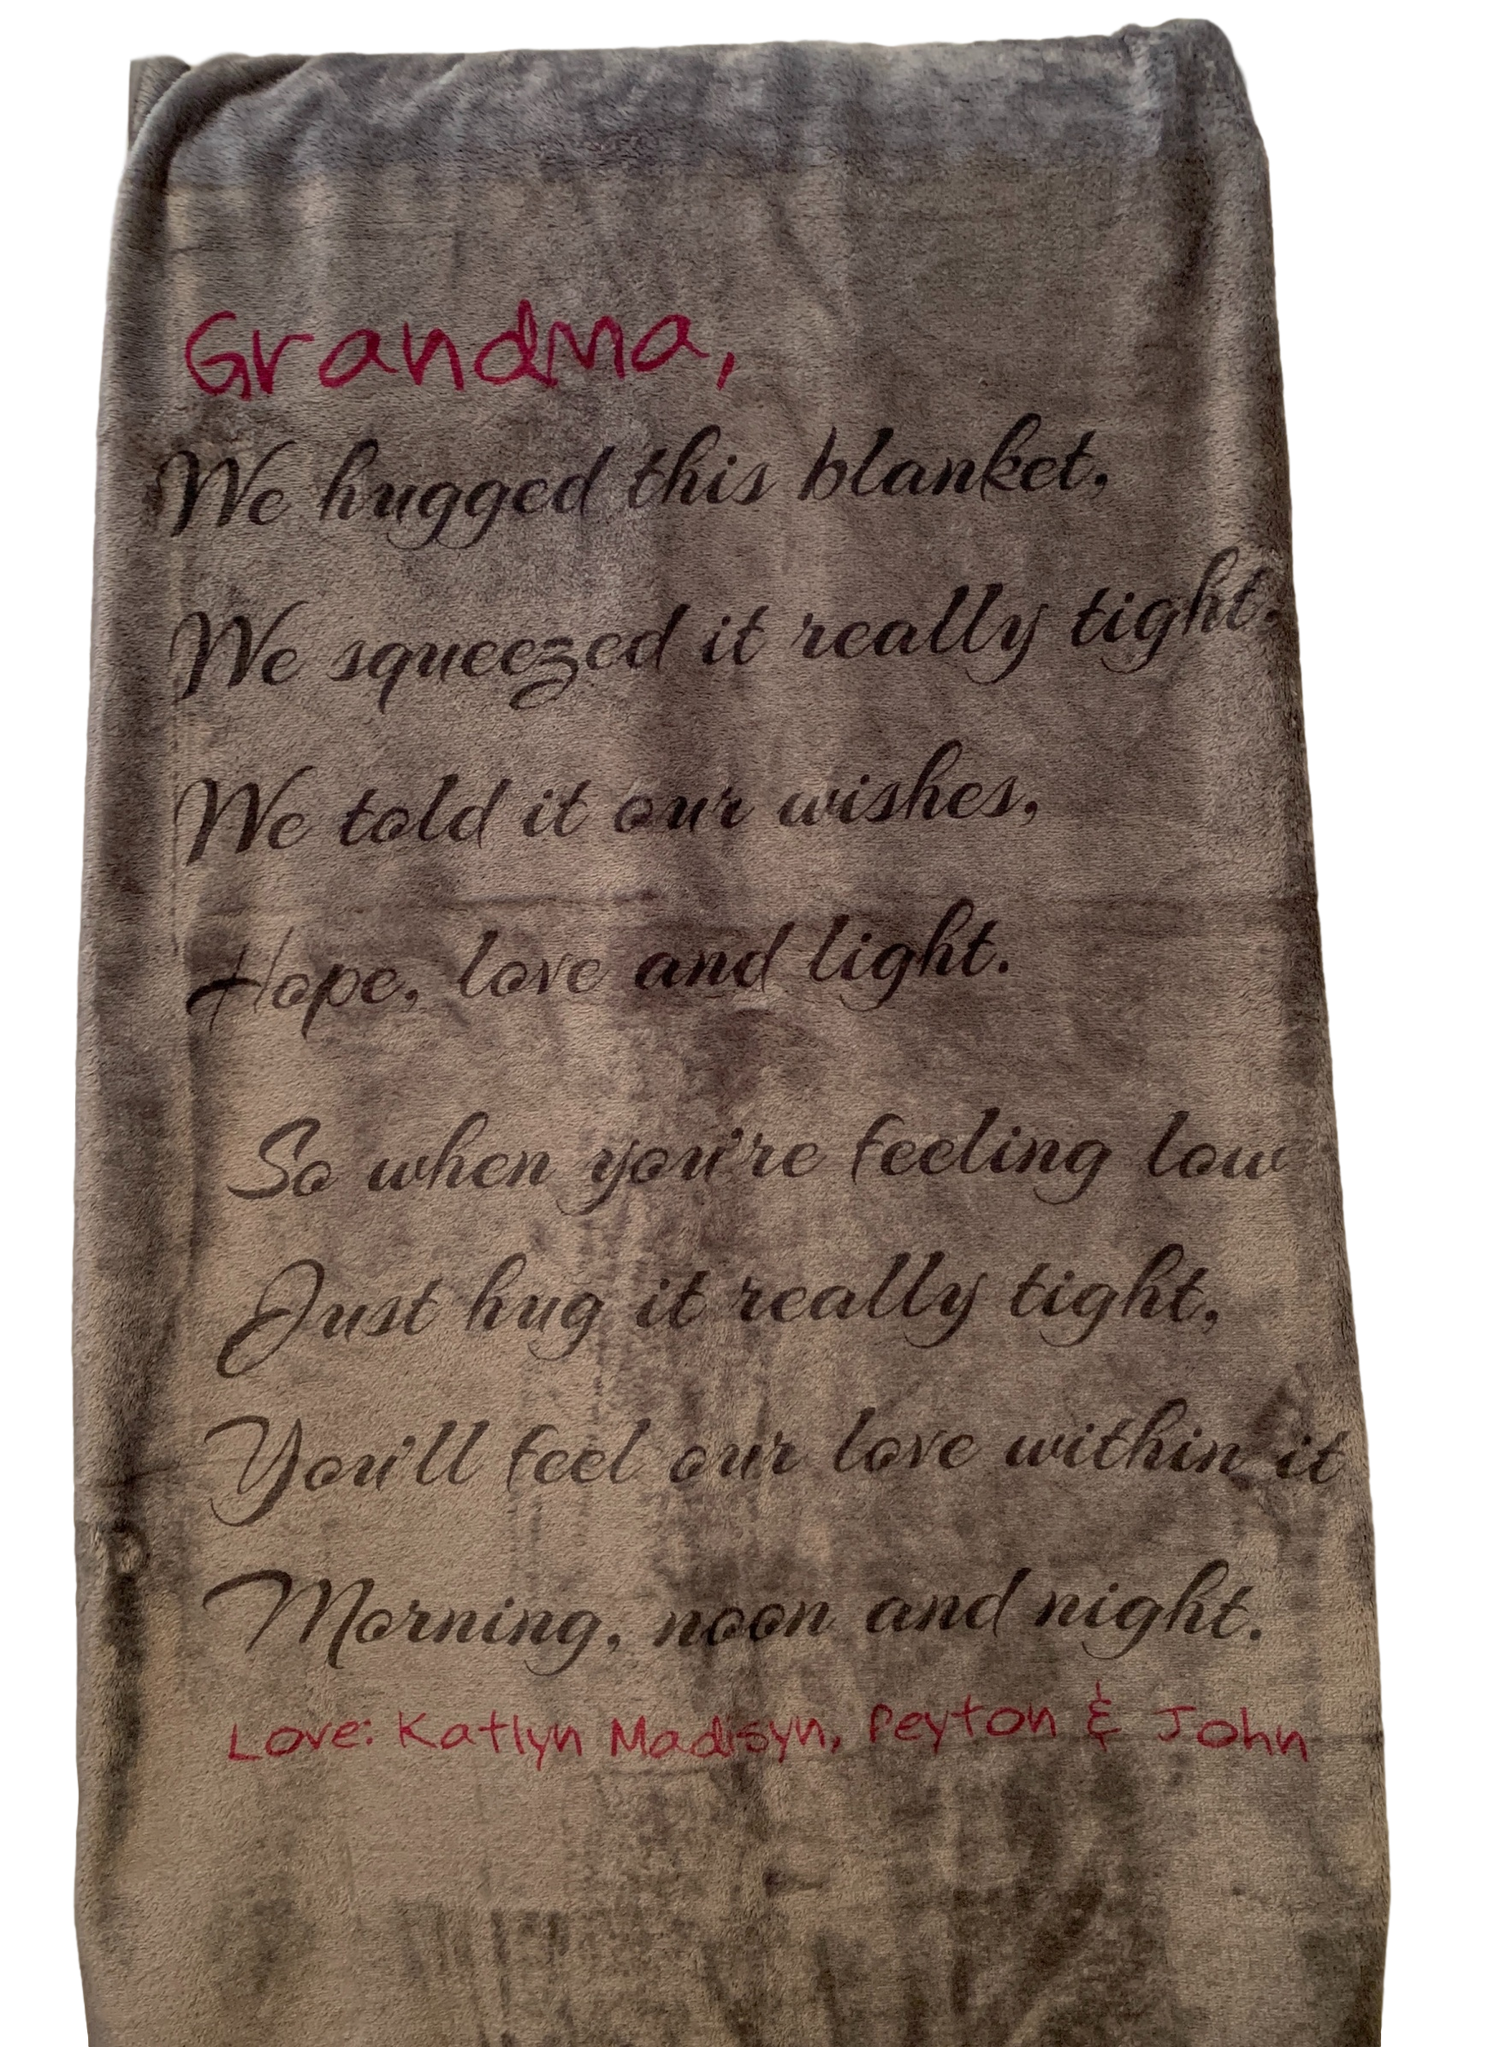 Grandma,
We hugged this blanket,
We squeezed it really tight.
We told it our wishes,
Hope, love and light.
So when you're feeling low
Just hug it really tight,
You'll feel our love within it
Morning, noon and night.
Love: Katlyn Madisyn, Peyton & John